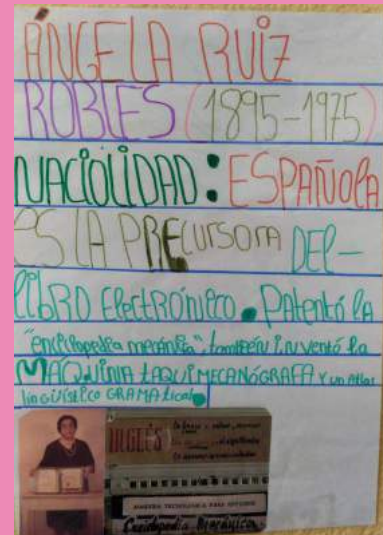 ÁNGELA RUIZ
ROBLES (1895-1975)
NACIOLIDAD: ESPAÑOLA
ES LA PRECURSORA DEL-
LIBRO ElectRÓNICO. Patentó la
"enciclopedia mecánica", también inventó la
MÁQUINIA tAQUIMECANÓGRAFA Y un Atlas
lingüístico GRAMAtical.
INGLÉS
Enciclopedia Mecánica